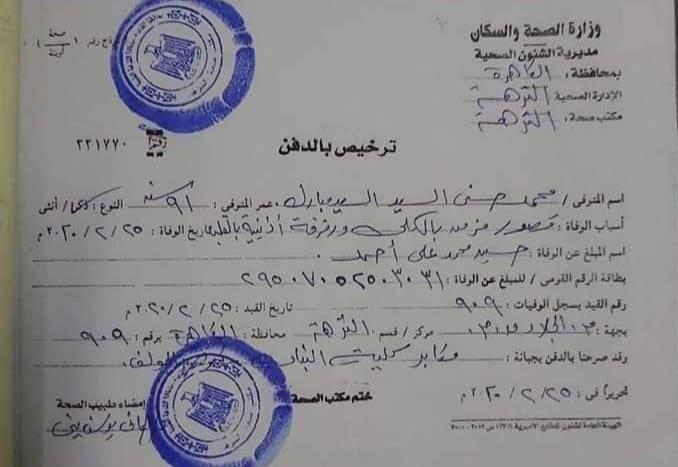 وزارة الصحة والسكان
مديرية الشئون الصحية
بمحافظة : القاهرة
الإدارة الصحية النزهة
مكتب صحة : النزهة
صحة
ترخيص بالدفن
٢٢١٧٧٠
اسم المتوفى / محمد حسنى السيد السيد مبارك عمر المتوفى : ٩١ سنة النوع : ذكر / أنثى
أسباب الوفاة : قصور مزمن بالكلى ورفرفة أذنية بالقلب تاريخ الوفاة : ٢٥ / ٢ / ٢٠٢٠ م
اسم المبلغ عن الوفاة : حسيد محمد على أحمد
بطاقة الرقم القومى / للمبلغ عن الوفاة : ٢٩٥٠٧٠٥٢٥٠٣٠٣١
رقم القيد بسجل الوفيات : ٩٠٩ تاريخ القيد : ٢٥ / ٢ / ٢٠٢٠ م
بجهة : مركز / قسم النزهة محافظة : القاهرة برقم : ٩٠٩
وقد صرحنا بالدفن بجبانة : مقابر كليت
تحريراً فى : ٢٥ / ٢ / ٢٠٢٠ م
ختم مكتب الصحة
إمضاء طبيب الصحة
الهيئة العامة لشئون المطابع الأميرية